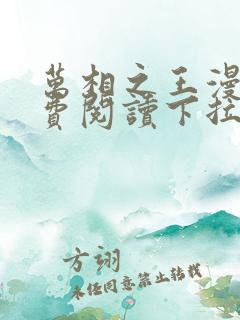 萬相之王漫
費閱讀下拉
方翊
未任同意禁止转载